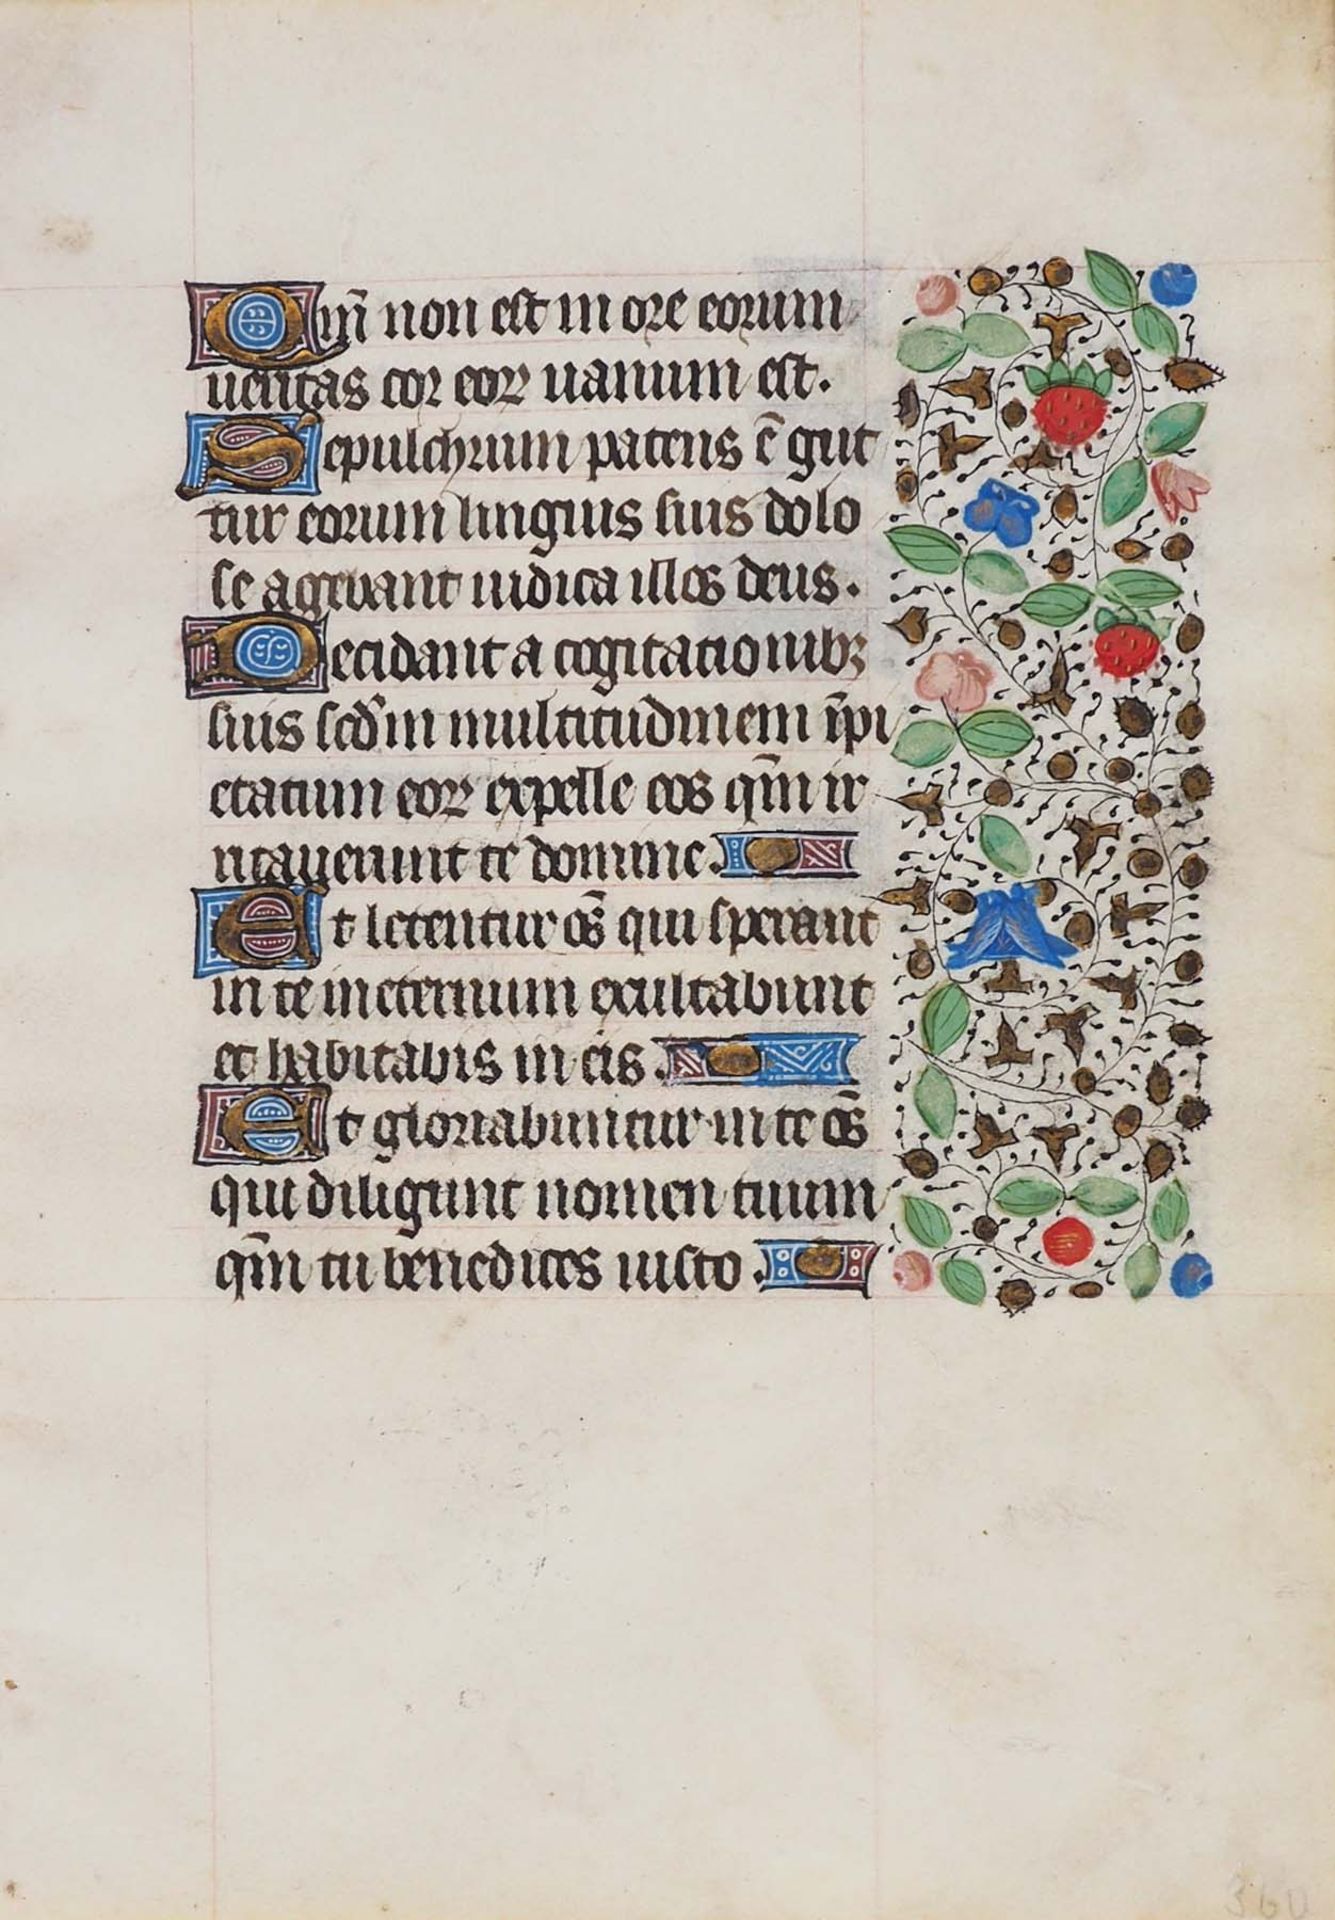 Qm̄ non est in ore eorum
ueritas cor eoꝝ uanum est.
Sepulchrum patens ē gut
tur eorum linguis suis dolo
se agebant iudica illos deus.
Decidant a cogitationibꝫ
suis scdm̄ multitudinem īpi
etatum eoꝝ expelle eos qm̄ ir
ritauerunt te domine.
Et letentur oēs qui sperant
in te in eternum exultabunt
et habitabis in eis.
Et gloriabuntur in te oēs
qui diligunt nomen tuum
qm̄ tu benedices iusto.
360